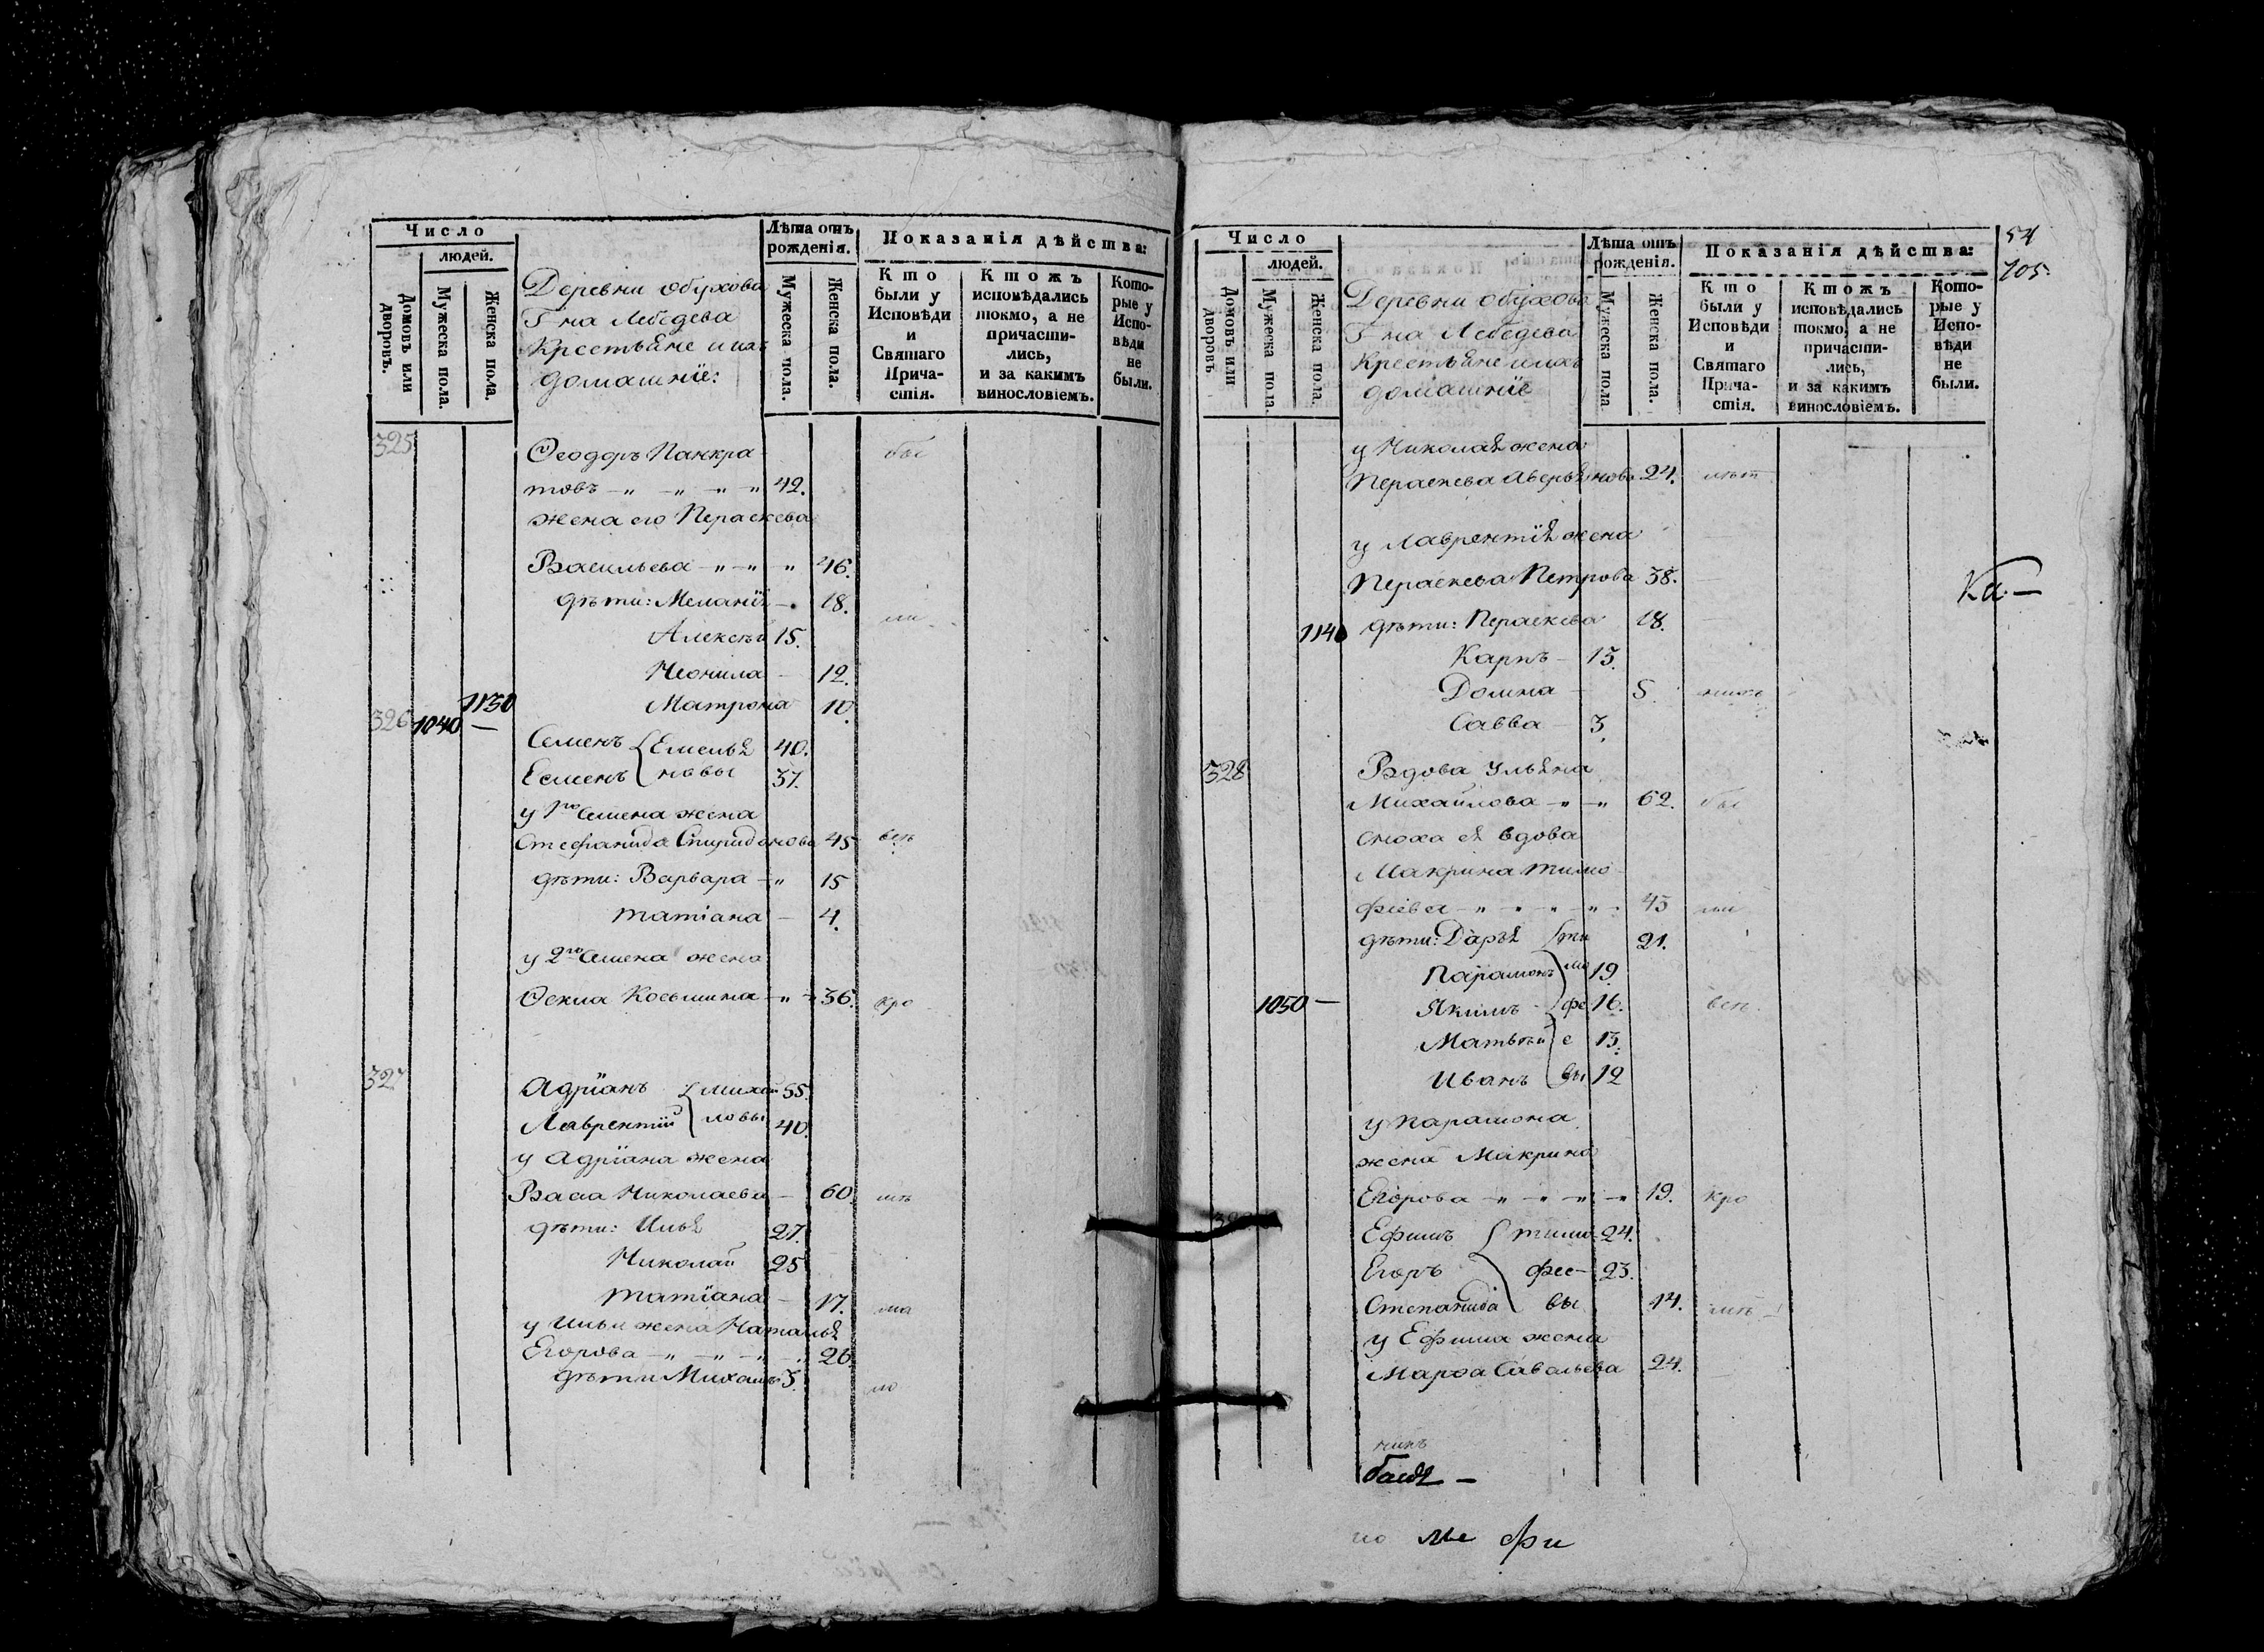 Число
людей.
Домовъ или дворовъ.
Мужеска пола.
Женска пола.
Деревни Обухова
Г на Лебедева
Крестьяне и ихъ
домашніе:
Лѣта отъ рожденія.
Мужеска пола.
Женска пола.
Показанія дѣйства:
Кто были у Исповѣди и Святаго Причастія.
Ктожъ исповѣдались токмо, а не причастились, и за какимъ винословіемъ.
Которые у Исповѣди не были.
325 Ѳеодоръ Панкра бы
товъ 42.
жена его Параскева
Васильева 46.
дѣти: Меланія 18.
Алексѣй 15.
Неонила 12.
Матрона 10.
326 1040 1130
Семенъ Емелья 40.
Семенъ новы 37.
у 1го Семена жена
Стефанида Спиридонова 45
дѣти: Варвара 15
Татіана 4.
у 2го Семена жена
Ѳекла Косьмина 36. кро
327 Адріанъ Михай 55.
Лаврентій ловы 40.
у Адріана жена
Васса Николаева 60.
дѣти: Илья 27.
Николай 25
Татіана 17.
у Ильи жена Наталья
Егорова 26
дѣти Михаилъ 3.
Число
людей.
Домовъ или дворовъ
Мужеска пола.
Женска пола.
Деревни Обухова
Г на Лебедева
Крестьяне и ихъ
домашніе
Лѣта отъ рожденія.
Мужеска пола
Женска пола.
Показанія дѣйства:
Кто были у Исповѣди и Святаго Причастія.
Ктожъ исповѣдались токмо, а не причастились, и за какимъ винословіемъ.
Которые у Исповѣди не были.
54
105.
у Николая жена
Параскева Аверьянова 24.
у Лаврентія жена
Параскева Петрова 38.
Ка
1140 дѣти: Параскева 18.
Карпъ 15.
Домна 5.
Савва 3.
328 Вдова Ульяна
Михайлова 62. бы
сноха ея вдова
Макрина Тимо
фѣева 45
дѣти: Дарья ти 21.
Парамонъ мо 19
1050 Якимъ фе 16.
Матвѣй е 13.
Иванъ вы 12
у Парамона
жена Макрина
Егорова 19. кро
Ефимъ Тимо 24.
Егоръ фее 23.
Степанида вы 14.
у Ефима жена
Марѳа Савельева 24.
ме фи